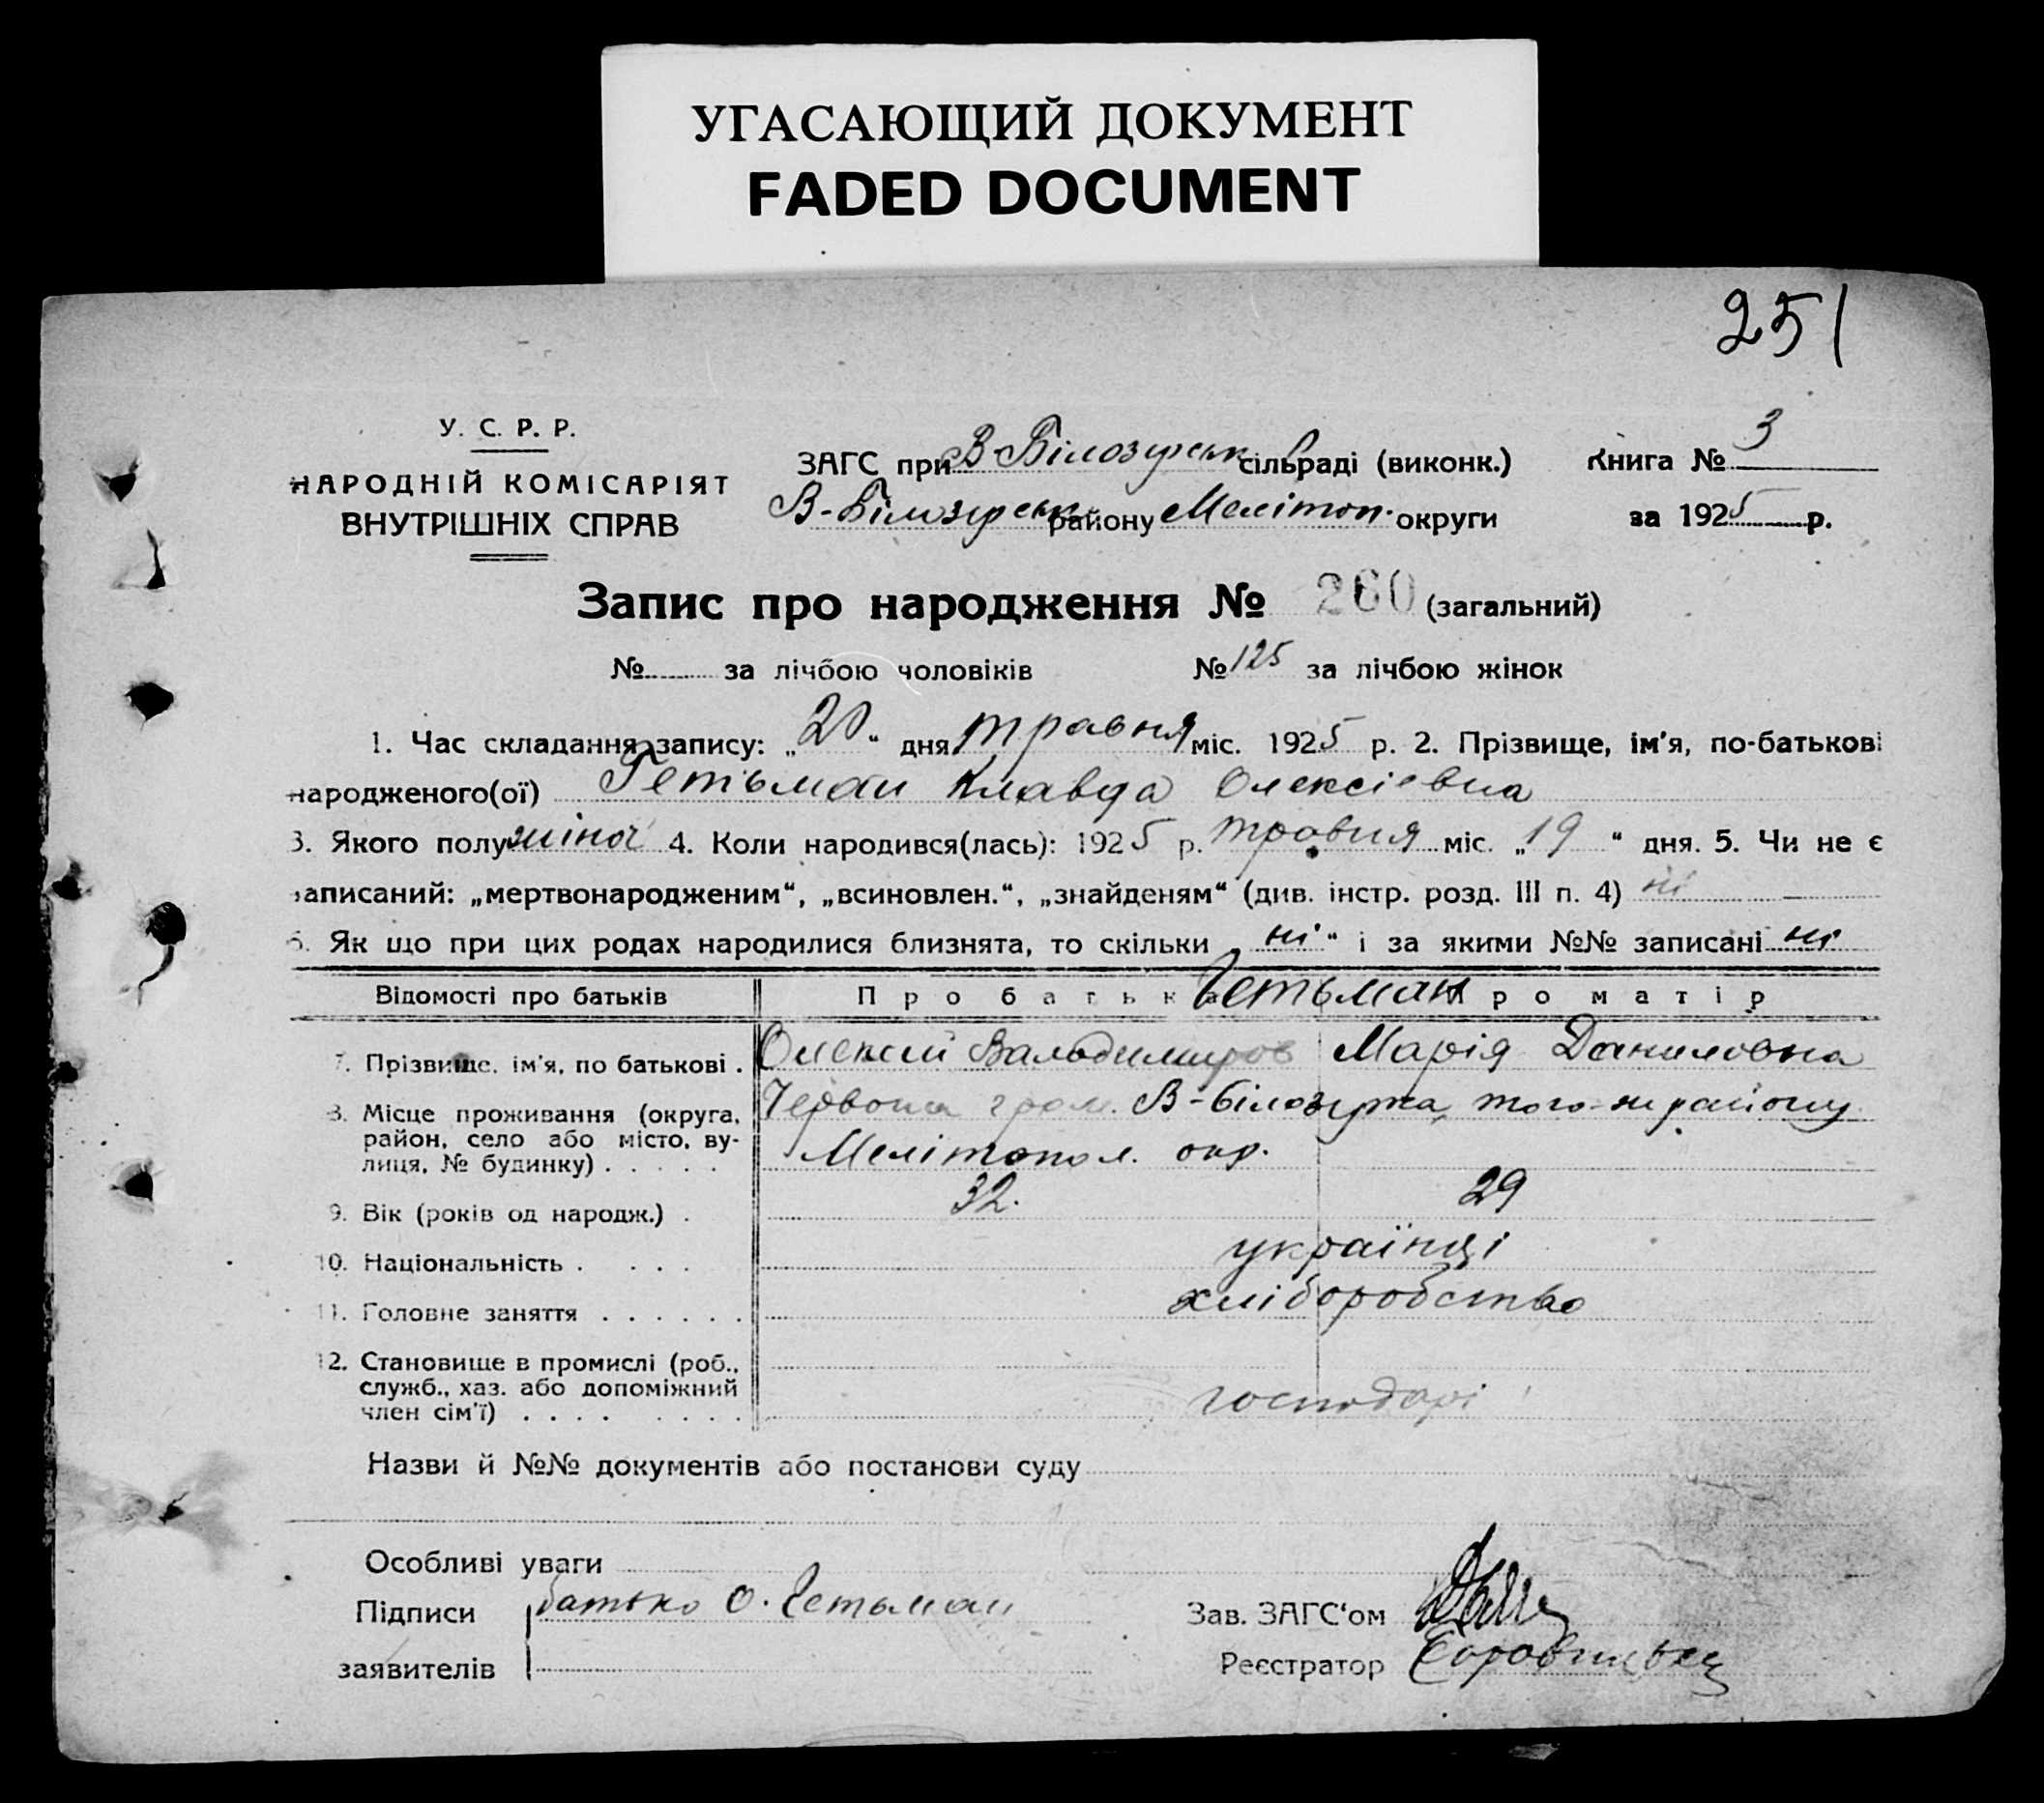 УГАСАЮЩИЙ ДОКУМЕНТ
FADED DOCUMENT
251
У. С. Р. Р.
НАРОДНІЙ КОМІСАРІЯТ
ВНУТРІШНІХ СПРАВ
ЗАГС при В-Білозерськ сільраді (виконк.)
В-Білозерськ району Мелітоп. округи
Книга № 3
за 1925 р.
Запис про народження № 260 (загальний)
№ за лічбою чоловіків № 125 за лічбою жінок
1. Час складання запису: „20“ дня травня міс. 1925 р. 2. Прізвище, ім'я, по-батькові
народженого(ої) Гетьман Клавда Олексієвна
3. Якого полу жіноч 4. Коли народився(лась): 1925 р. травня міс. „19“ дня. 5. Чи не є
записаний: „мертвонародженим“, „всиновлен.“, „знайденям“ (див. інстр. розд. III п. 4) ні
6. Як що при цих родах народилися близнята, то скільки „ні“ і за якими №№ записані ні
Відомості про батьків Про батька Гетьман Про матір
7. Прізвище, ім'я, по батькові . Олексій Вальдимиров Марія Даниловна
8. Місце проживання (округа, район, село або місто, вулиця, № будинку) . . . . . Червона гром. В-Білозерка, того-ж району
Мелітопол. окр.
9. Вік (років од народж.) . 32. 29
10. Національність . . . . українці
11. Головне заняття . . . . . . хліборобство
12. Становище в промислі (роб.,
служб., хаз. або допоміжний
член сім'ї) . . . . . . . . господарі
Назви й №№ документів або постанови суду
Особливі уваги
Підписи батько О. Гетьман
заявителів
Зав. ЗАГС‘ом
Реєстратор